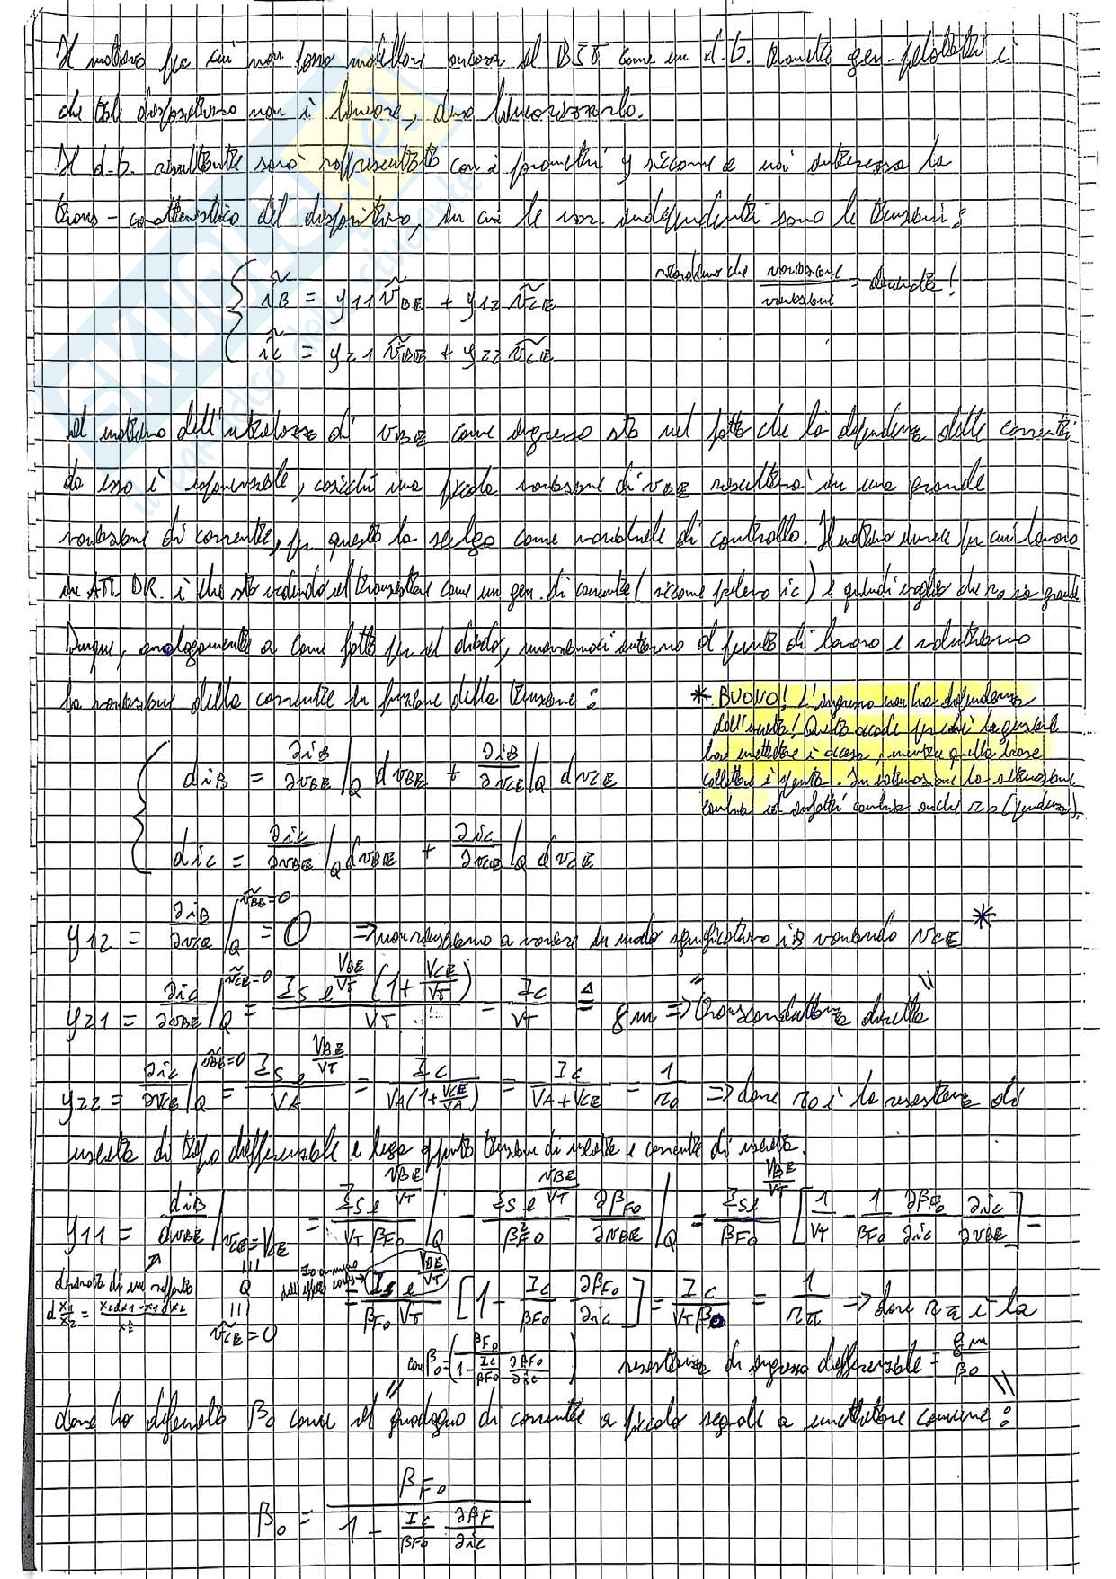 Il motivo per cui non posso modellare ancora il BJT come un d.b. tramite gen. pilotati è
che tale dispositivo non è lineare, devo linearizzarlo.
Il d.b. risultante sarà rappresentato con i parametri y siccome a noi interessa la
trans-caratteristica del dispositivo, in cui le var. indipendenti sono le tensioni:
ĩB = y11 ṽBE + y12 ṽCE
ricordiamo che variazione/variazione = derivata!
ĩC = y21 ṽBE + y22 ṽCE
Il motivo dell'utilizzare di vBE come ingresso sta nel fatto che la dipendenza delle correnti
da esso è esponenziale, cosicché una piccola variazione di vBE risulterà in una grande
variazione di corrente, per questo la scelgo come variabile di controllo. Il motivo invece per cui lavoro
in AT. DR. è che sto vedendo il transistore come un gen. di corrente (siccome prelevo ic) e quindi voglio che ro sia grande
Dunque, analogamente a come fatto per il diodo, muoviamoci intorno al punto di lavoro e valutiamo
la variazione della corrente in funzione della tensione:
* BUONO! L'ingresso non ha dipendenza
dall'uscita! Questo accade perché la giunzione
base emettitore è accesa, mentre quella base
collettore è spenta. In saturazione la situazione
cambia infatti cambia anche ro (pendenza).
diB = ∂iB/∂vBE |Q dvBE + ∂iB/∂vCE |Q dvCE
diC = ∂iC/∂vBE |Q dvBE + ∂iC/∂vCE |Q dvCE
y12 = ∂iB/∂vCE |Q ṽBE=0 = 0 ⇒ non riusciamo a variare in modo significativo iB variando vCE *
y21 = ∂iC/∂vBE |Q ṽCE=0 = IS e^(VBE/VT) (1+VCE/VT) / VT = IC/VT ≜ gm ⇒ "Trasconduttanza diretta"
y22 = ∂iC/∂vCE |Q ṽBE=0 = IS e^(VBE/VT) / VA = IC / VA(1+VCE/VA) = IC/(VA+VCE) = 1/ro ⇒ dove ro è la resistenza di
uscita di tipo differenziale e lega appunto tensione di uscita e corrente di uscita.
y11 = diB/dvBE |vCE=VCE = IS e^(VBE/VT) / VT βF0 |Q - IS e^(VBE/VT) / βF0² ∂βF0/∂vBE |Q = IS e^(VBE/VT) / βF0 [1/VT - 1/βF0 ∂βF0/∂iC ∂iC/∂vBE] =
derivata di un rapporto
d x1/x2 = (x2dx1-x1dx2)/x2²
Q
ṽCE=0
= IS e^(VBE/VT) / βF0 VT [1 - IC/βF0 ∂βF0/∂iC] = IC/VT β0 = 1/rπ → dove rπ è la
con β0 = (βF0 / (1 - IC/βF0 ∂βF0/∂iC)) resistenza di ingresso differenziale = gm/β0
dove ho definito β0 come il "guadagno di corrente a piccolo segnale a emettitore comune":
β0 = βF0 / (1 - IC/βF0 ∂βF/∂iC)